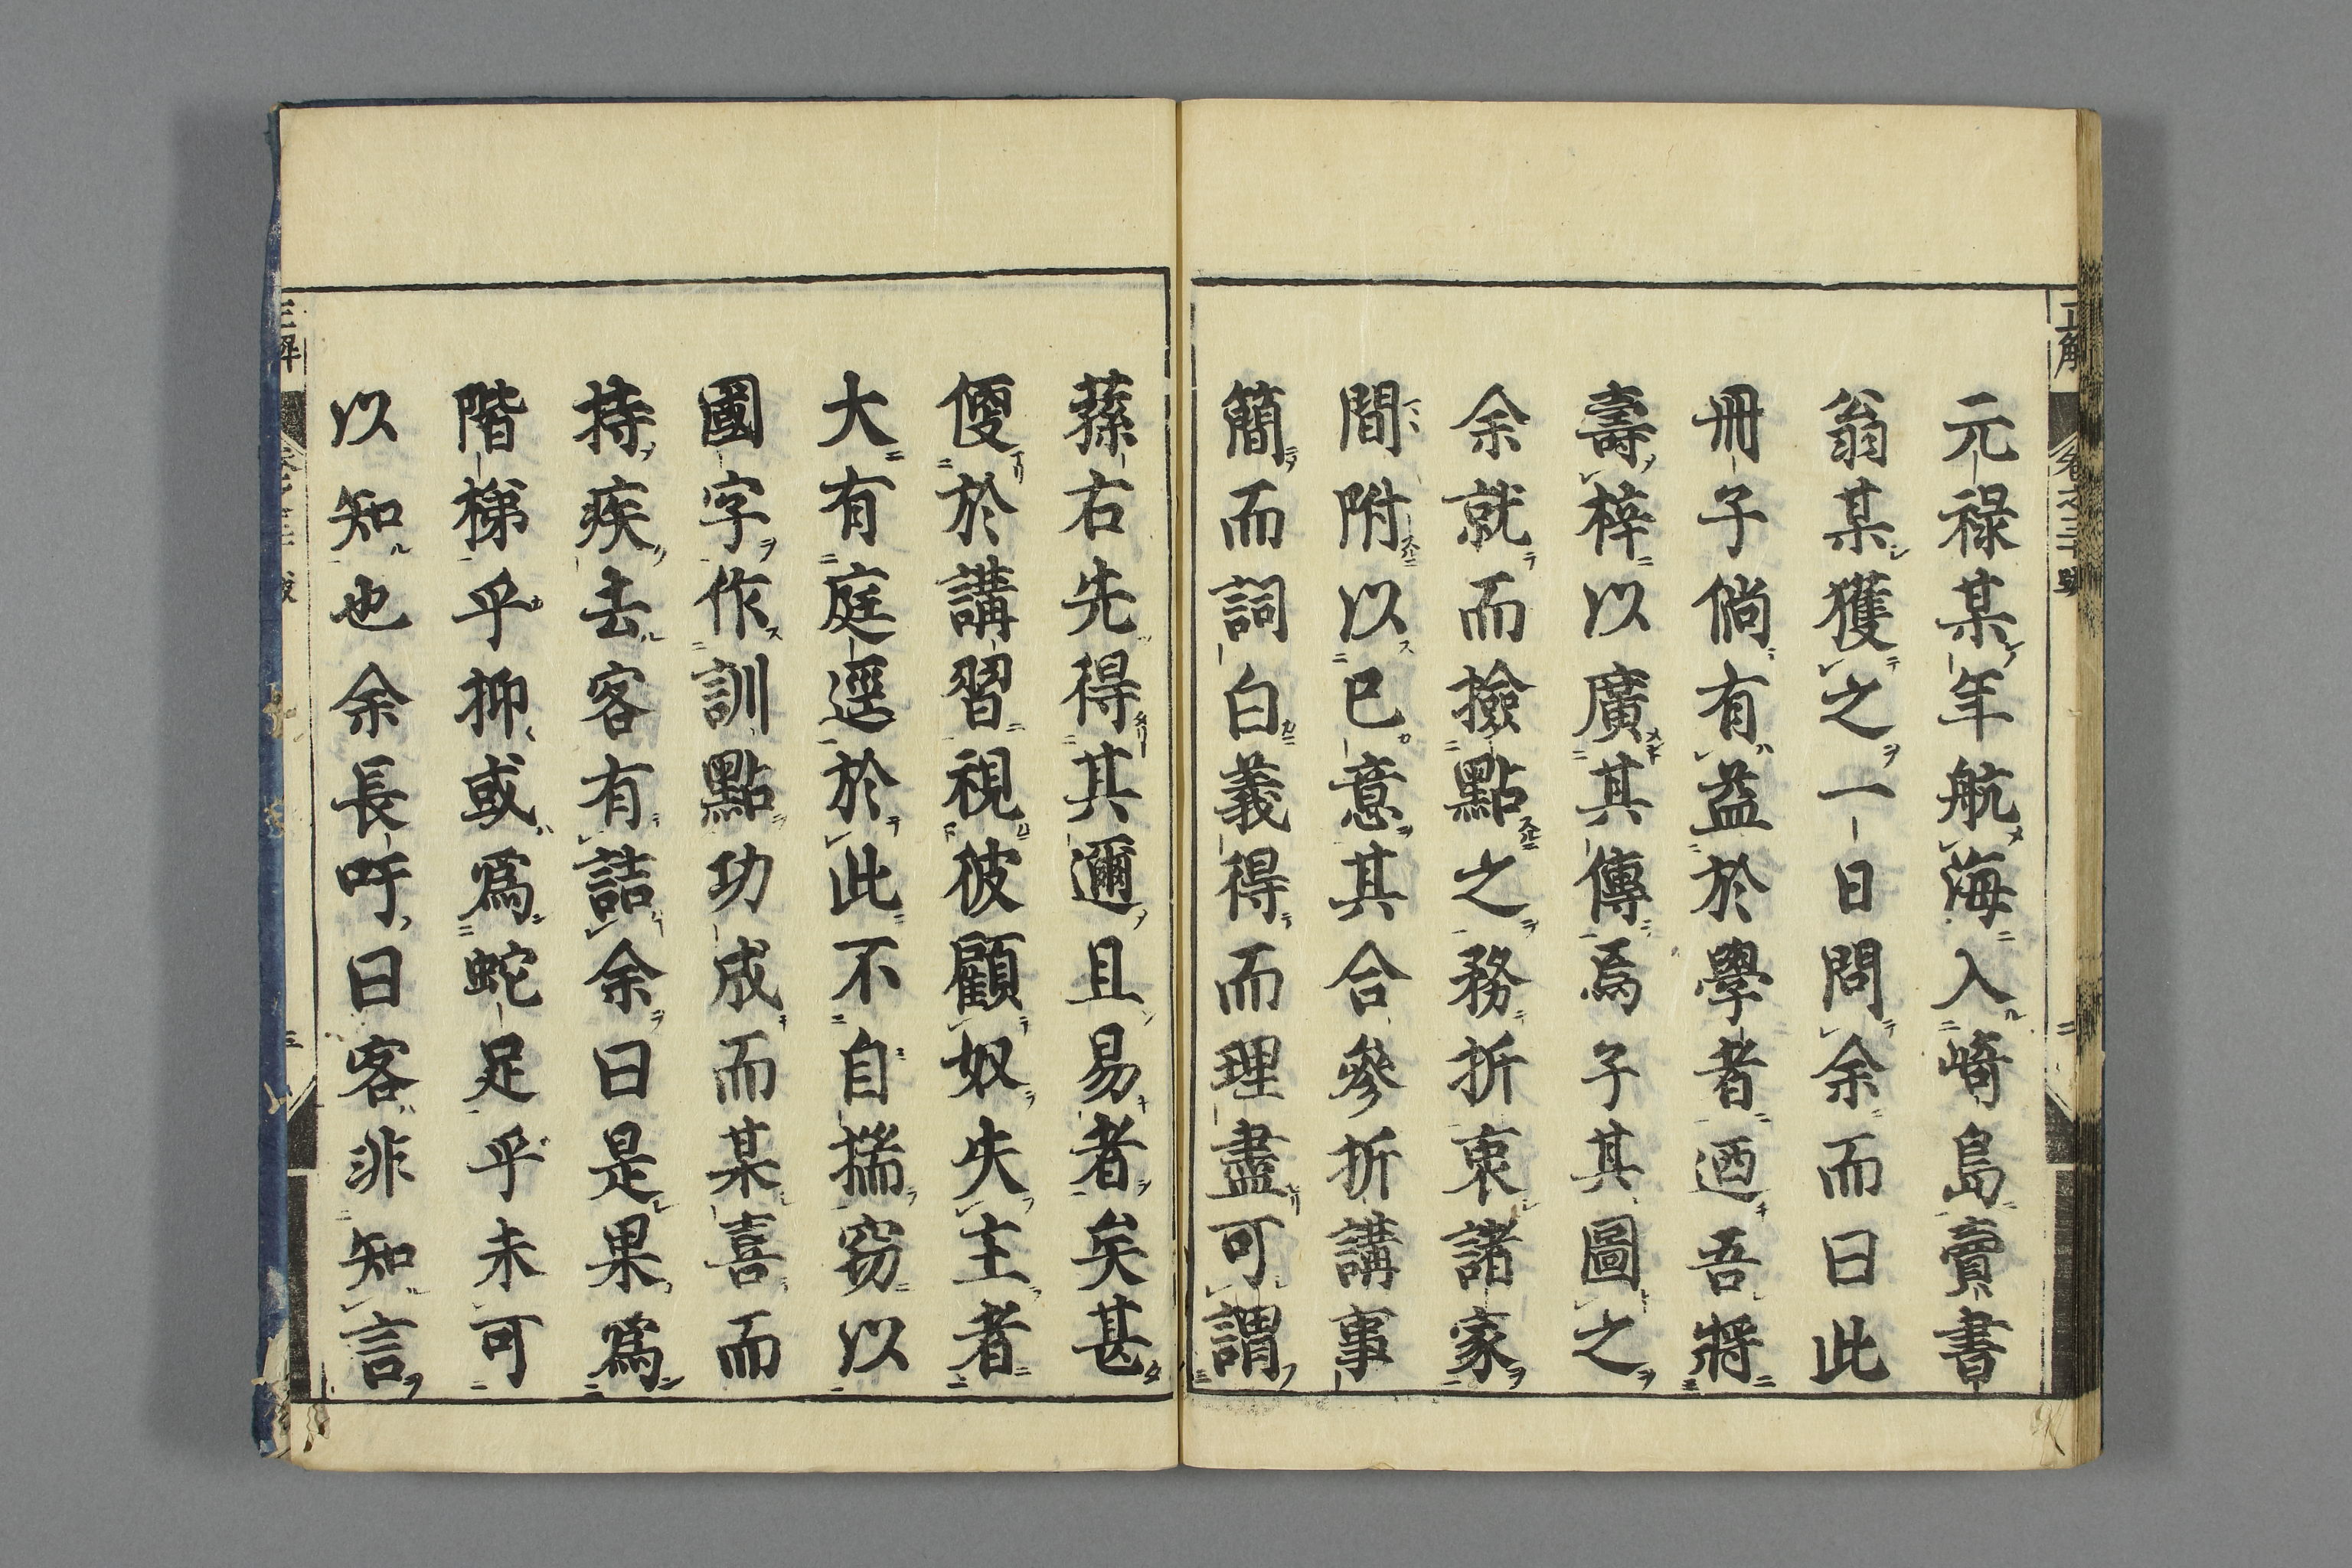 元祿某年航海入崎島賣書
翁某獲之一日問余而曰此
冊子倘有益於學者迺吾將
壽梓以廣其傳焉子其圖之
余就而撿點之務折衷諸家
間附以已意其合參折講事
簡而詞白義得而理盡可謂
蓀右先得其邇且易者矣甚
便於講習視彼顧奴失主者
大有庭逕於此不自揣窃以
國字作訓點功成而某喜而
持疾去客有詰余曰是果爲
階梯乎抑或爲蛇足乎未可
以知也余長吁曰客非知言